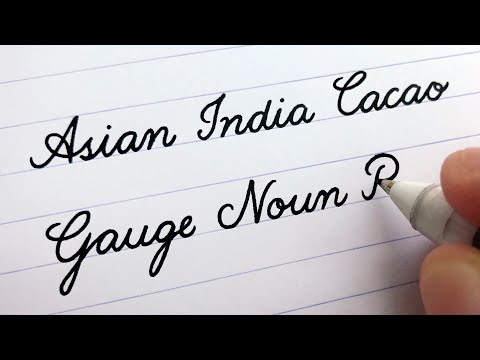 Asian India Cacao
Gauge Noun P